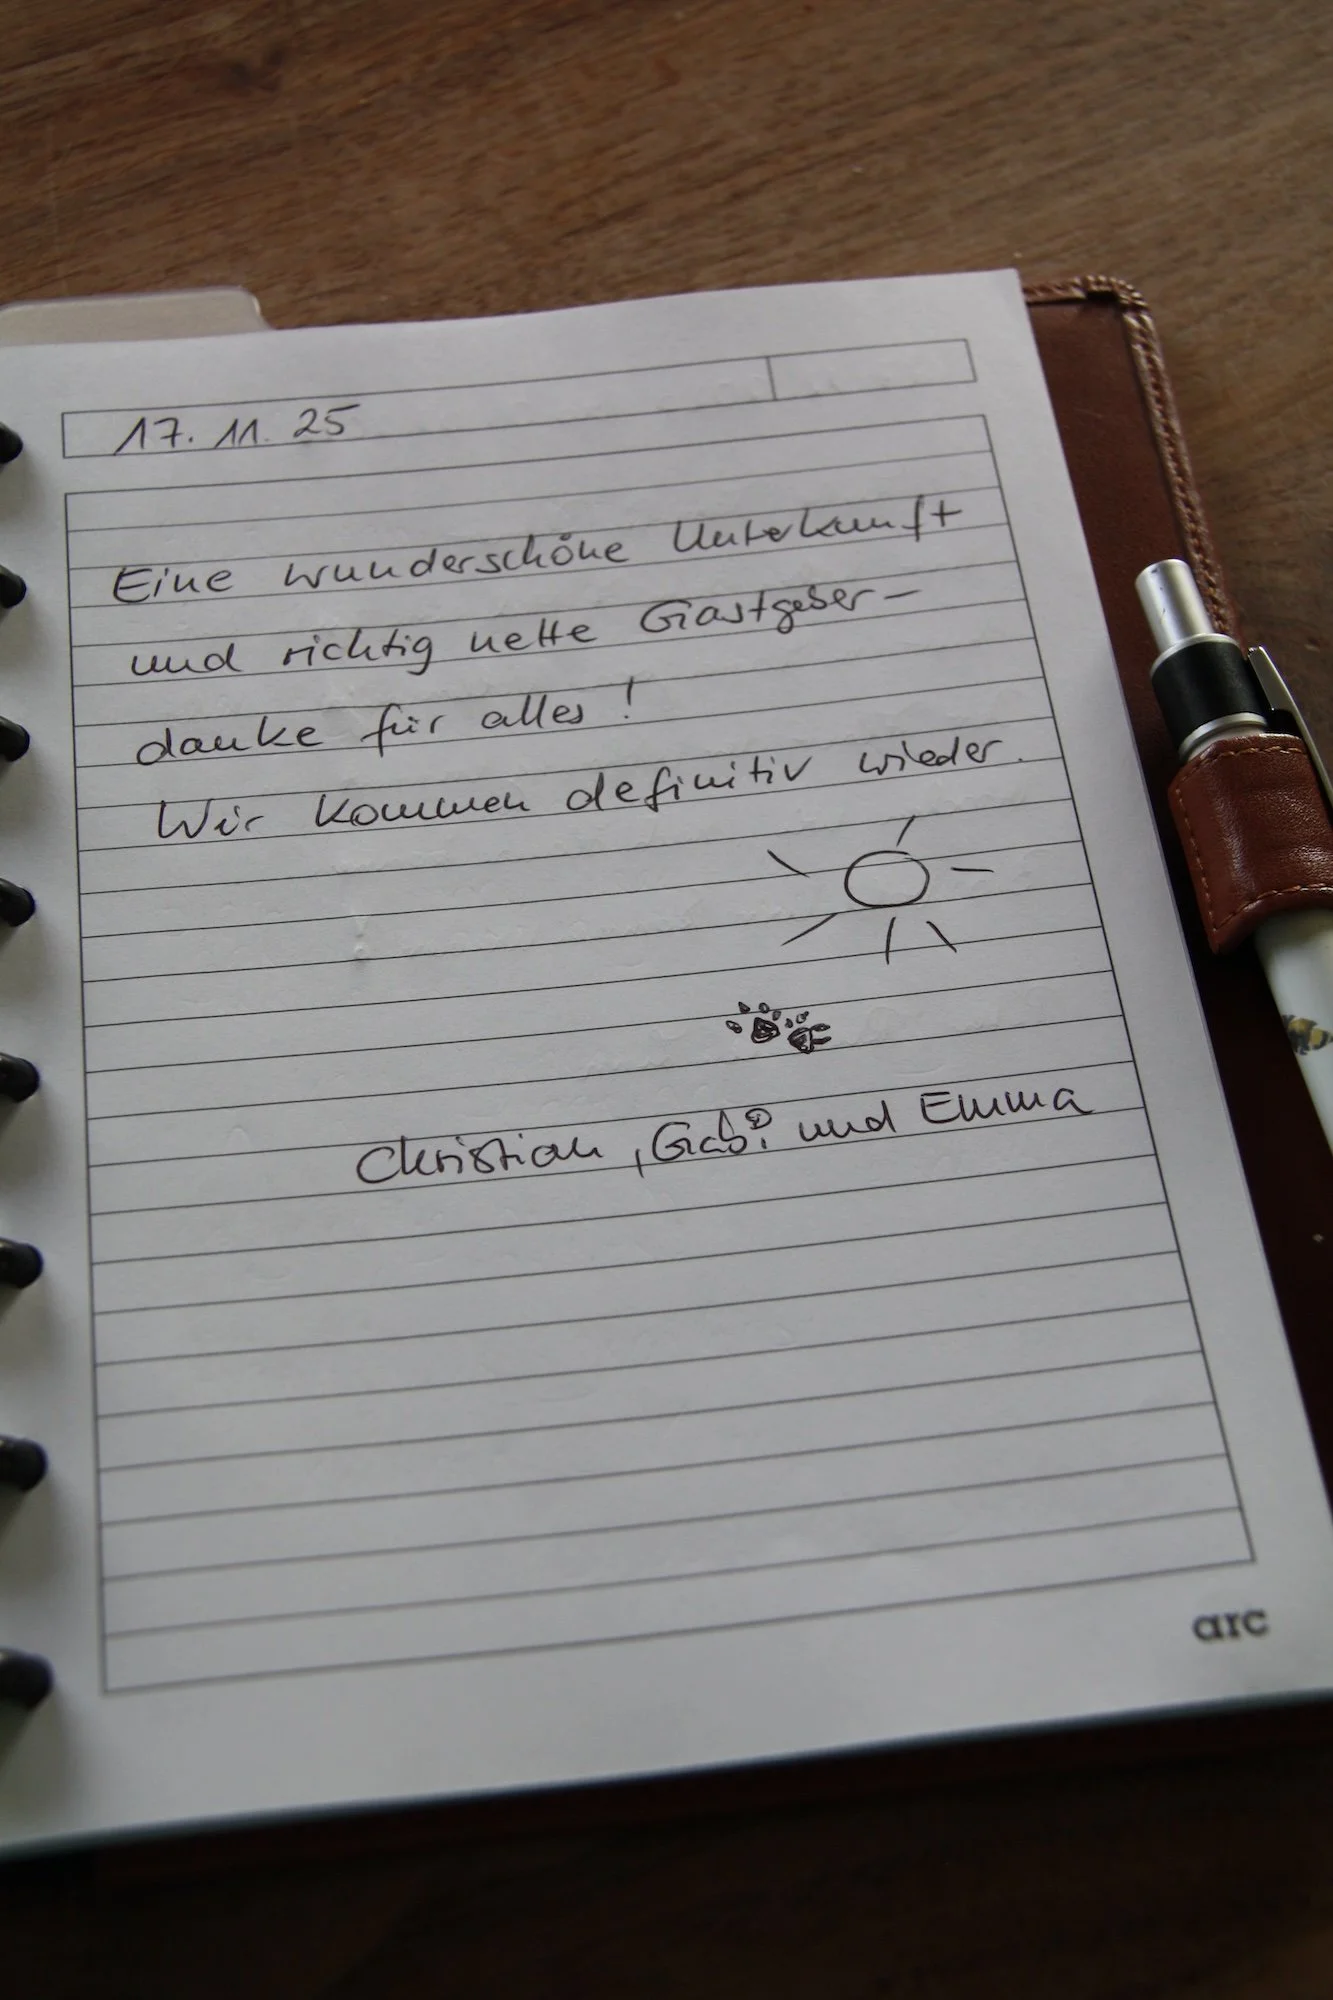 17. 11. 25
Eine wunderschöne Unterkunft
und richtig nette Gastgeber –
danke für alles!
Wir kommen definitiv wieder.
Christian, Gabi und Emma
arc